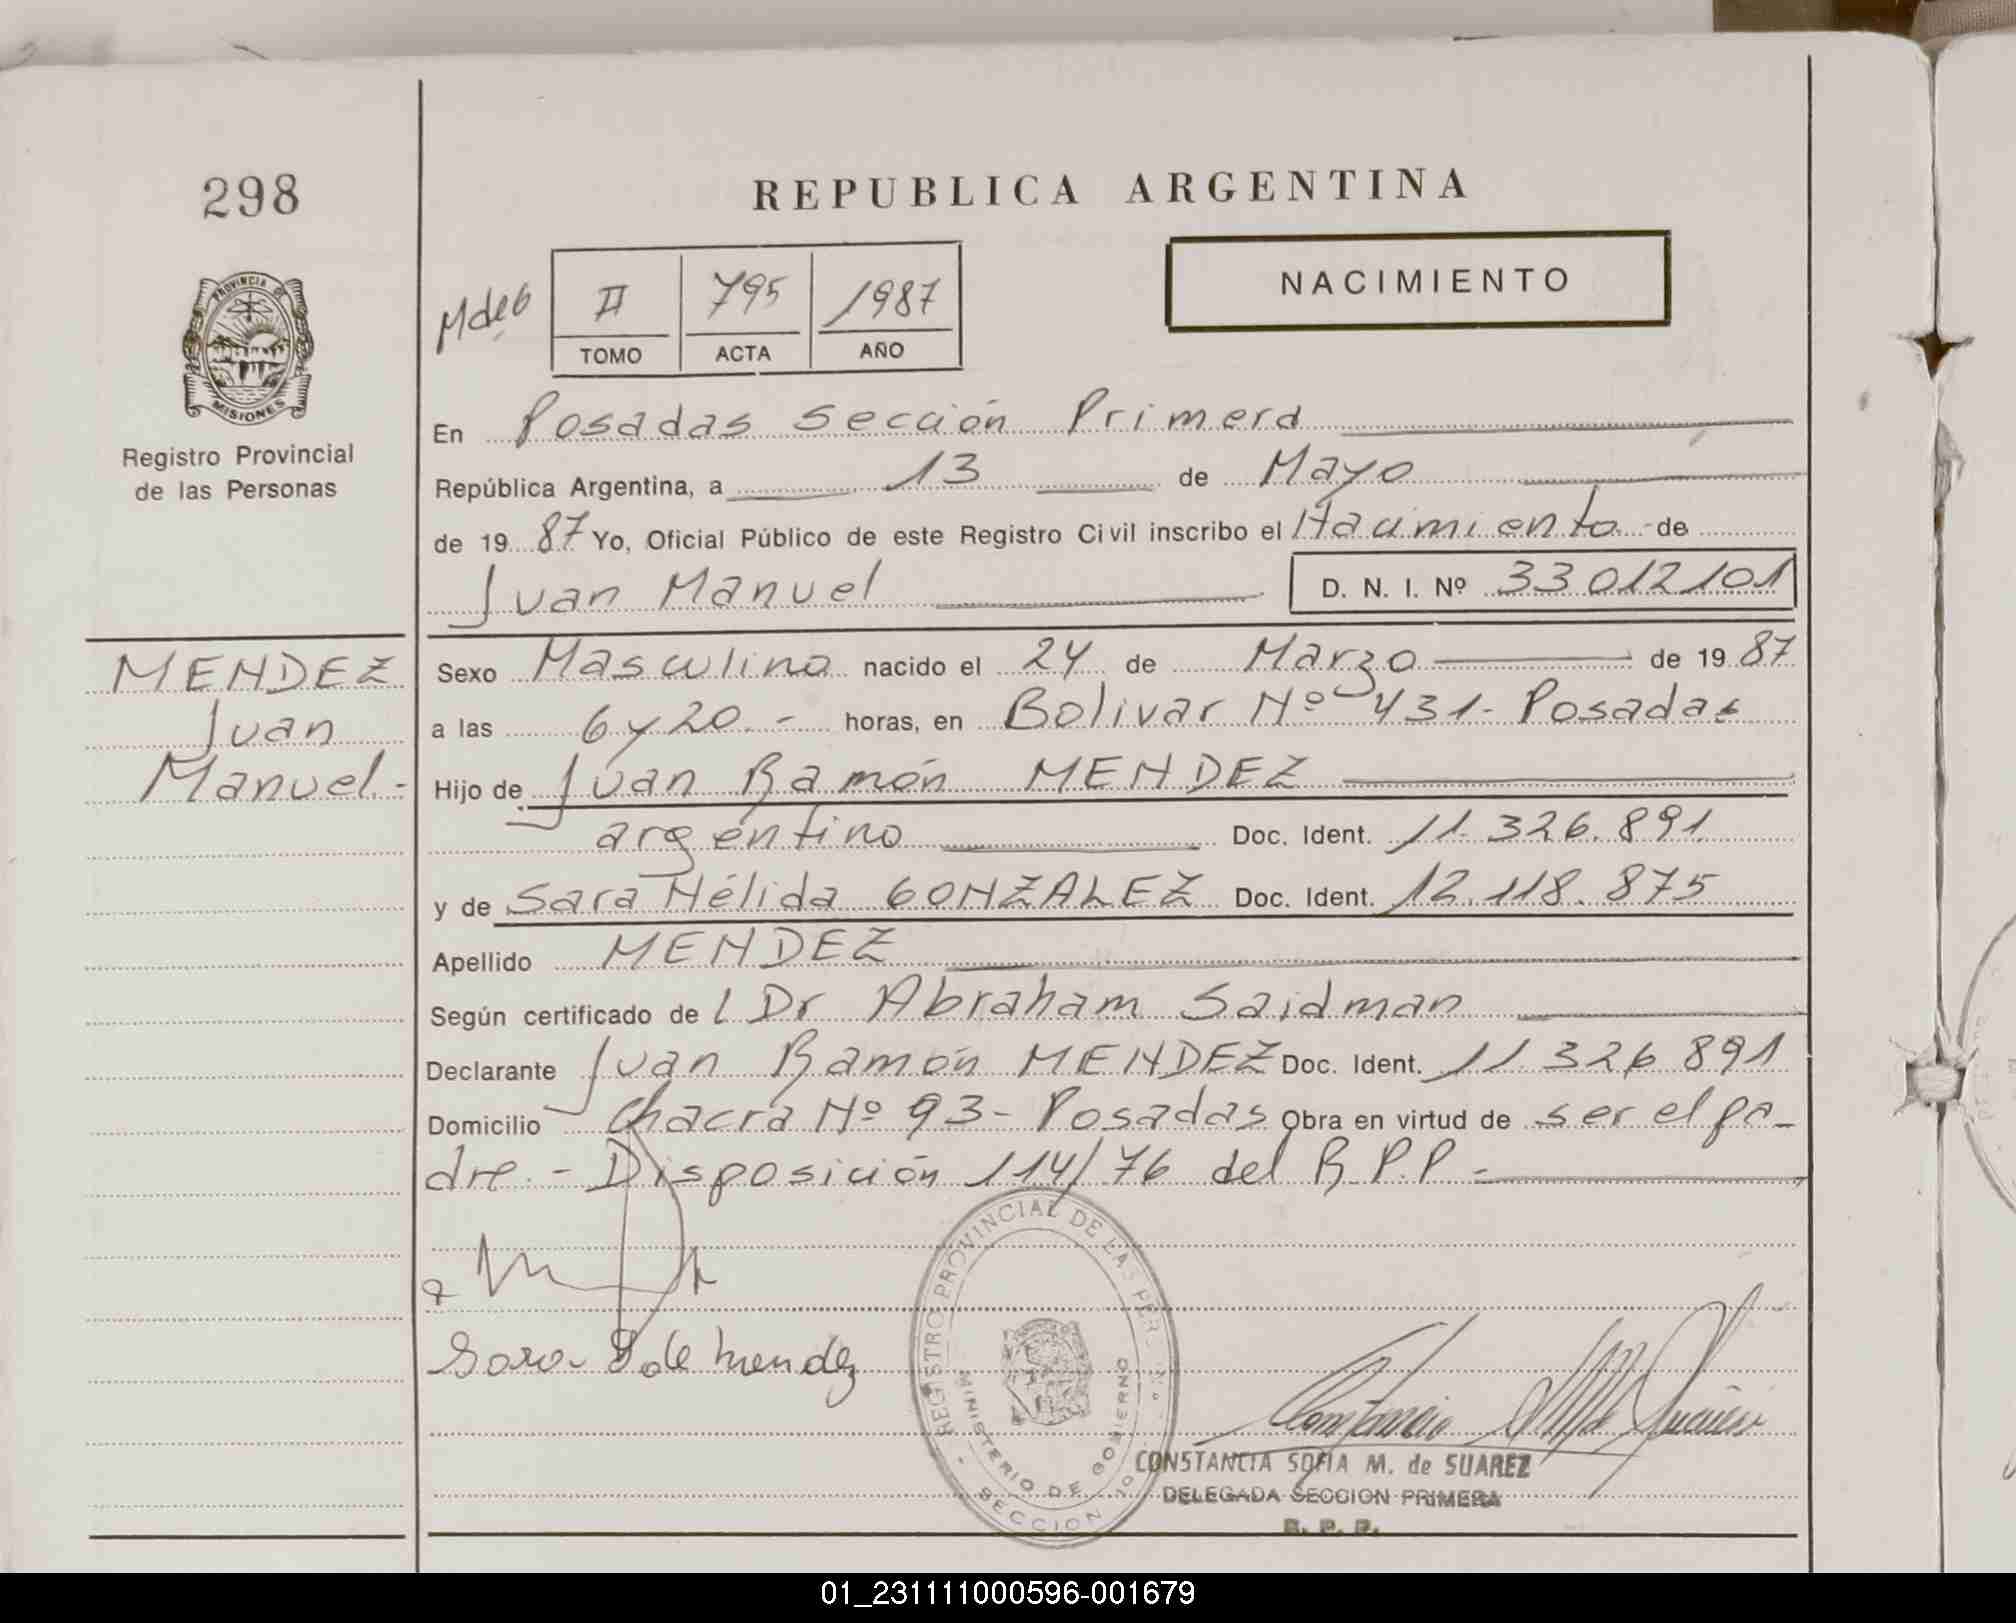 298
REPUBLICA ARGENTINA
NACIMIENTO
II 795 1987
TOMO ACTA AÑO
PROVINCIA DE
MISIONES
Registro Provincial
de las Personas
En Posadas Sección Primera
República Argentina, a 13 de Mayo
de 19 87 Yo, Oficial Público de este Registro Civil inscribo el Nacimiento de
Juan Manuel D. N. I. Nº 33 012 101
MENDEZ
Juan
Manuel.-
Sexo Masculino nacido el 24 de Marzo de 19 87
a las 6 y 20.- horas, en Bolivar Nº 431- Posadas
Hijo de Juan Ramón MENDEZ
argentino Doc. Ident. 11.326.891
y de Sara Nélida GONZALEZ Doc. Ident. 12.118.875
Apellido MENDEZ
Según certificado de l Dr Abraham Saidman
Declarante Juan Ramón MENDEZ Doc. Ident. 11.326.891
Domicilio Chacra Nº 93- Posadas Obra en virtud de ser el pa-
dre.- Disposición 114/76 del R.P.P.-
Sara G de Mendez
REGISTRO PROVINCIAL DE LAS PER
MINISTERIO DE GOBIERNO
SECCION 1o
CONSTANCIA SOFIA M. de SUAREZ
DELEGADA SECCION PRIMERA
R. P. P.
01_231111000596-001679